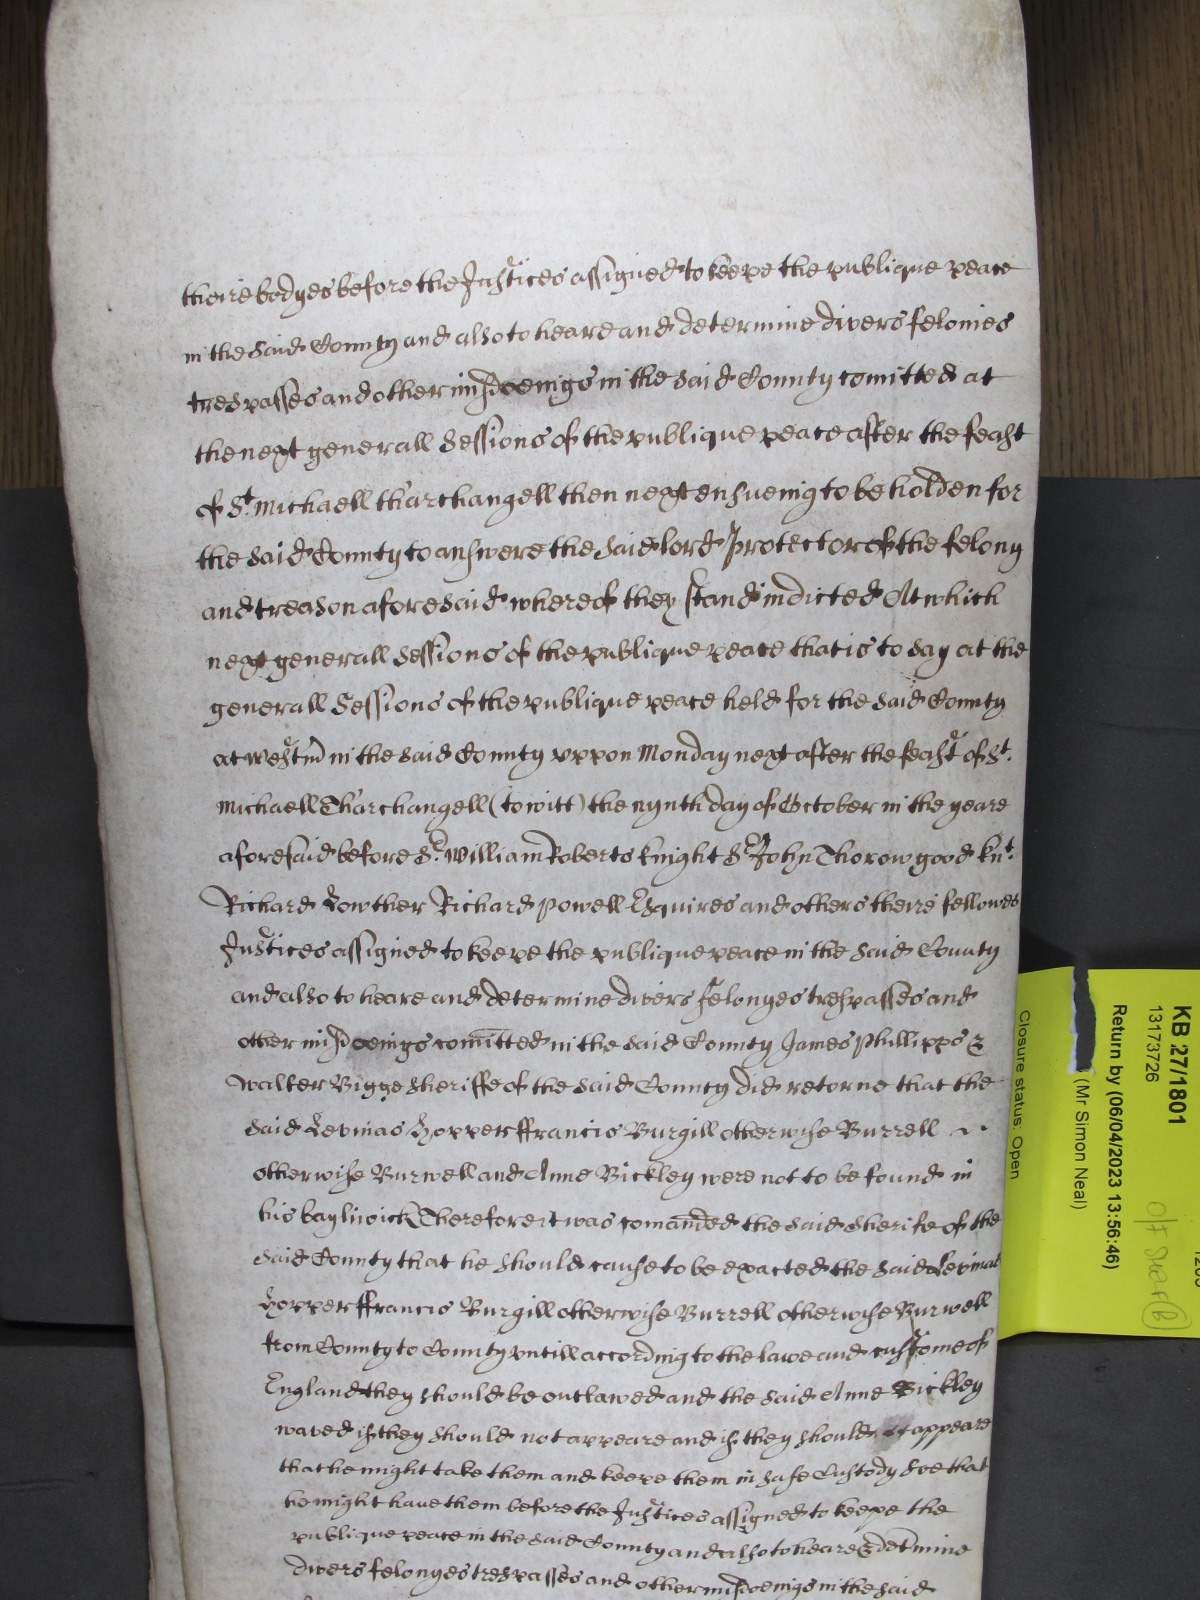 theire bodyes before the Justices assigned to keepe the publique peace
in the said County and also to heare and determine divers felonies
trespasses and other misdoeings in the said County comitted at
the next generall Sessions of the publique peace after the feast
of St. Michaell th'archangell then next ensueing to be holden for
the said County to answere the said lord Protector of the felony
and treason aforesaid whereof they stand indicted At which
next generall Sessions of the publique peace that is to say at the
generall Sessions of the publique peace held for the said County
at Westm in the said County uppon Monday next after the feast of St.
Michaell Th'archangell (to witt) the nynth day of October in the yeare
aforesaid before Sr. William Roberts knight Sr John Thorowgood knt.
Richard Lowther Richard Powell Esquires and others theire fellowes
Justices assigned to keepe the publique peace in the said County
and also to heare and determine divers felonyes trespasses and
other misdoeings comitted in the said County James Phillipps &
Walter Bigge Sheriffe of the said County did retorne that the
said Levinas Hopper ffrancis Burgill otherwise Burrell
otherwise Burwell and Anne Bickley were not to be found in
his bayliwick Therefore it was comanded the said Sherife of the
said County that he should cause to be exacted the said Levinas
Hopper ffrancis Burgill otherwise Burrell otherwise Burwell
from County to County untill according to the lawe and custome of
England they should be outlawed and the said Anne Bickley
waved if they should not appeare and if they should appeare
that he might take them and keepe them in safe Custody Soe that
he might have them before the Justices assigned to keepe the
publique peace in the said County and also to heare & determine
divers felonyes trespasses and other misdoeings in the said
KB 27/1801
13173726
Return by (06/04/2023 13:56:46)
(Mr Simon Neal)
Closure status: Open